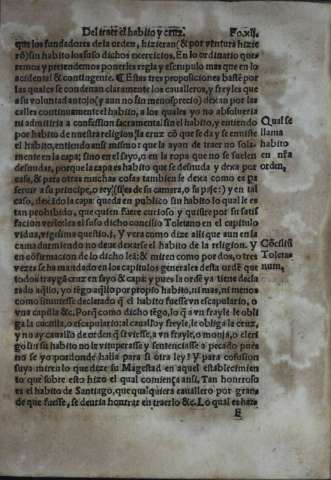 Del traer el habito y cruz. Fo.xij.
que los fundadores de la orden, hizieran (& por ventura hizie
rō) sin habito los suso dichos exercicios. En lo ordinatio que-
remos y pretendemos ponerles regla y escrupulo mas que en lo
acidental & contingente. Estas tres proposiciones bastē por
las quales se condenan claramente los caualleros, y freyles que
a su voluntad antojo (y aun no sin menosprecio) dexan por las
calles continuamente el habito, a los quales yo no absolueria
ni admitiria a confession sacramental sin el habito, y entiendo
por habito de nuestra religion, la cruz cō que se da y se emiste
el habito, entiendo ansi mismo: que la ayan de traer no sola-
mente en la capa; sino en el sayo, o en la ropa que no se suelen
desnudar, porque la capa es habito que se desnuda y dexa por
casa, & para otras muchas cosas tambien se dexa como es pa
seruir a su principe, o rey (si es de su camara, o su paje:) y en tal
caso, dexada la capa: queda en publico sin habito lo qual le es
tan prohibido, que quien fuere curioso y quisiere por su satis
facion verlo lea el suso dicho concilio Toletano en el capitulo
vidua, vigesima questio. j. Y vera como dize alli que aun en la
cama durmiendo no deue dexarse el habito de la religion. Y
en cōfirmacion de lo dicho leā: & miren como por dos, o tres
vezes se ha mandado en los capitulos generales desta ordē que
todos traygā cruz en sayo & capa: y pues la ordē ya tiene decla
rado aq̄llo, yo tēgo aq̄llo por proprio habito, ni mas, ni menos
como si vuiesse declarado q̄ el habito fuesse vn escapulario, o
vna capilla &c. Porq̄ como dicho tēgo, lo q̄ a vn frayle le obli
ga la cuculla, o escapulario: al cauallro y freyle, le obliga la cruz,
y no ay cauallro de orden q̄ si viesse, a vn frayle, o monja, o cleri
go sin su habito no le vituperasse y sentenciasse a pecado pues
no se yo por donde halla para si otra ley? Y para confusion
suya miren lo que dize su Magestad en aquel establecimien
to que sobre esto hizo el qual comiença ansi. Tan honrroso
es el habito de Santiago, que qualquiera cauallero por gran-
de que fuesse, se deuria honrrar en traerlo &c. Lo qual es harta
B
Qual se
llama
habito
en nra
orden,
Cōcilio
Toleta-
num,